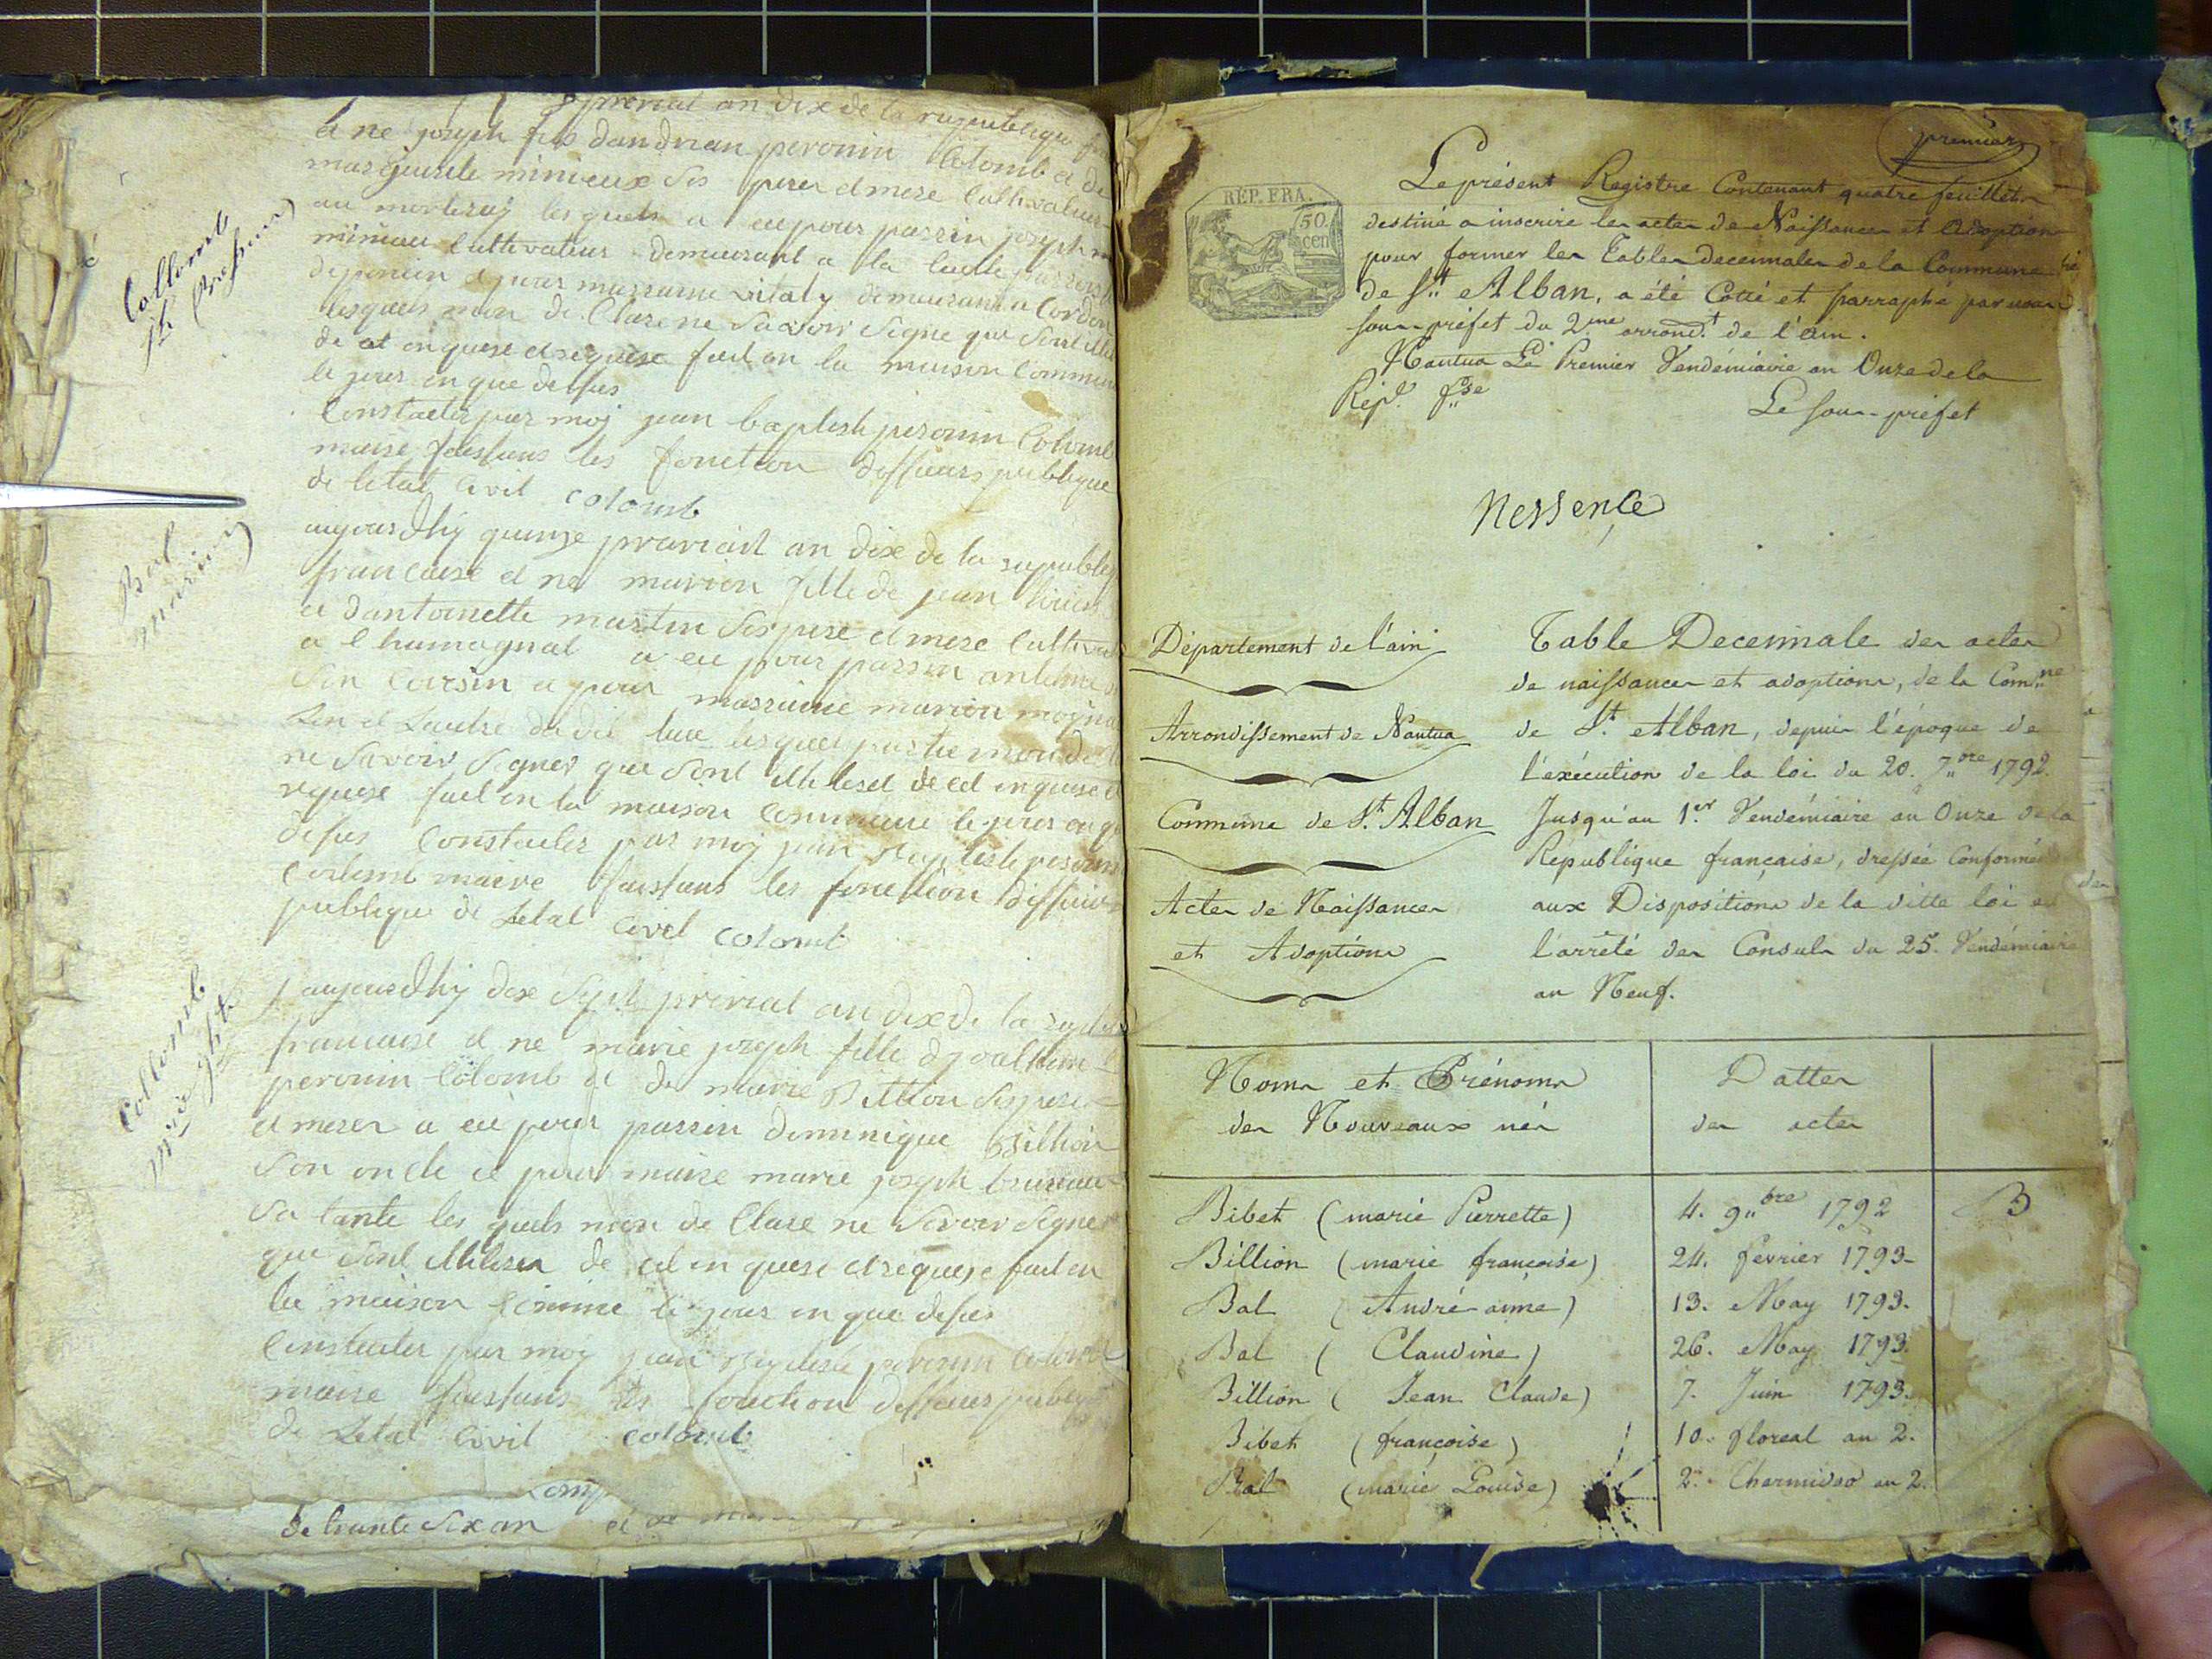 prerial an dix de la republique
et ne joseph fils dandrian peronin Colomb et de
marguerite minieux ses peres et mere Cultivateur
au morterey les quels a eu pour parrin joseph
minieux Cultivateur demeurant a la
et pour marraine vitaly demeurant a Cordon
lesquels mon de Clare ne Savoir Signe que Sont
de at enquese et reguese fait en la maison Commun
le jour en que desus
Constater par moj jean baptiste peronin Colomb
maire faissans les fonction dofficiers publique
de letat Civil colomb
Collomb
jh
Bal
marion
aujourdhÿ quinze prerial an dix de la republiq
francaise et ne marion fille de jean
et dantoinette martin Ses pere et mere Cultiva
a Chamagnat a eu pour parrin anthme
Son Coursin et pour marraine marion
lun et Lautre du dit lieu lesquel partie mon de
ne Savoir Signer que Sont de et enquise et
reguese fait en la maison Commune le jour en q
desus Constater par moy jean Baptiste peronin
Colomb maire faissans les fonction
publique de Letat Civil colomb
Collomb
aujourdhÿ dix Sept prerial an dix de la repub
francaise et ne marie joseph fille djoachim
peronin Colomb et de marie Billion Ses pere
et meres a eu pour parrin dominique Billion
Son oncle et pour maire marie joseph bruneau
Sa tante les quels mon de Clare ne Savoir Signer
que Sont de et en quese et reguese fait en
la maison Comune le jour en que desus
Constater par moy jean Baptiste peronin Colomb
maire faissans les fonction dofficiers publiq
de Letat Civil colomb
de trante Six an et
premier
REP. FRA.
50.
cen
Le présent Registre Contenant quatre feuillets
destiné a inscrire les actes de Naissances et Adoptions
pour former les Tables decennales de la Commune
de St. Alban, a été Cotté et parraphé par nous
sous-préfet du 2me arrondt. de l'ain.
Nantua Le Premier Vendémiaire an Onze de la
Répe. fse
Le sous-préfet
Nessençe
Département de l'ain
Arrondissement de Nantua
Commune de St. Alban
Actes de Naissances
et Adoptions
Table Decennale des actes
de naissances et adoptions, de la Comne
de St. Alban, depuis l'époque de
l'exécution de la loi du 20. 7bre 1792.
Jusqu'au 1er. Vendémiaire an Onze de la
République française, dressée Conformé
aux Dispositions de la ditte loi et
l'arrêté des Consuls du 25. Vendémiaire
an Neuf.
Noms et Prénoms
des Nouveaux nés
Dattes
des actes
Bibet (marie Pierrette) 4. 9bre 1792 B
Billion (marie françoise) 24. février 1793
Bal (André aimé) 13. May 1793.
Bal (Claudine) 26. May 1793.
Billion (Jean Claude) 7. Juin 1793.
Bibet (françoise) 10. floreal an 2.
Bal (marie Louise) 2. Thermidor an 2.